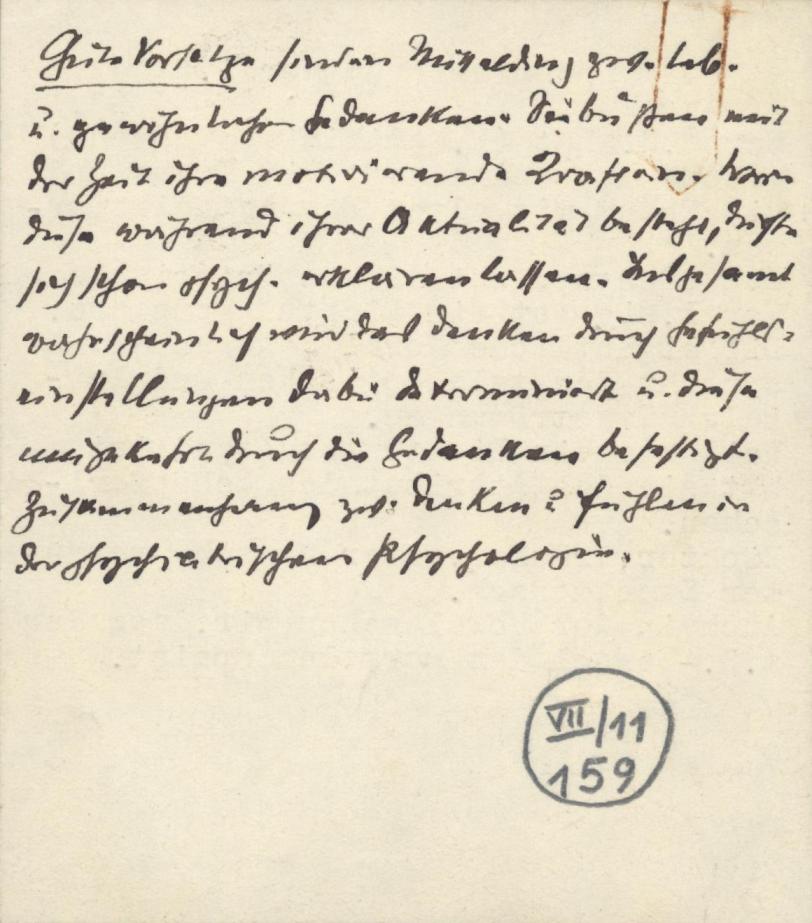 Gute Vorsätze sind ein Mittelding zw. leb.
u. gewöhnlichen Gedanken. Sie büßen mit
der Zeit ihre motivierende Kraft ein. Worin
diese während ihrer Aktualität besteht, dürfte
sich schon psych. erklären lassen.
wahrscheinlich wird das Denken durch Gefühls-
einstellungen dabei determiniert u. diese
umgekehrt durch die Gedanken befestigt.
Zusammenhang zw. Denken u Fühlen in
der psychiatrischen Psychologie.
VII/11
159